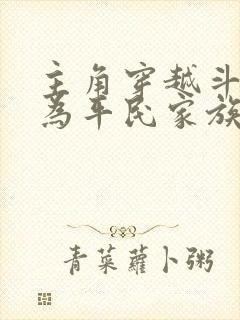 主角穿越斗
為平民家族
青菜蘿卜粥